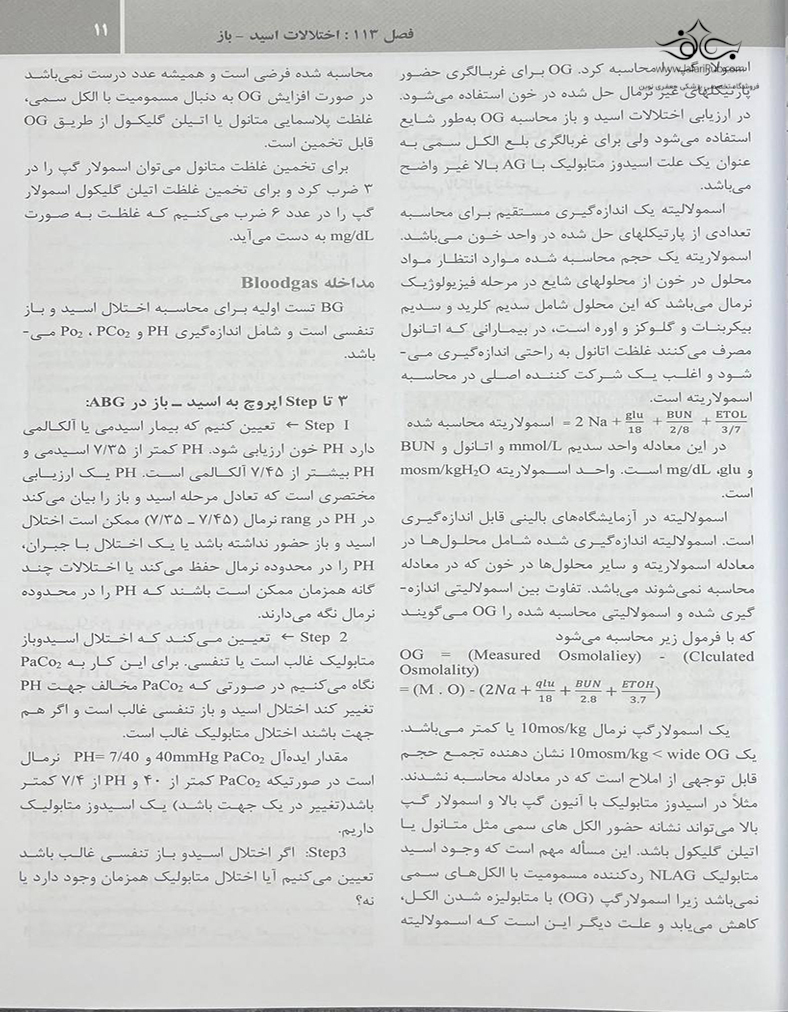 ۱۱
فصل ۱۱۳ : اختلالات اسید – باز
www.JafariPub.com
فروشگاه تخصصی پزشکی جعفری نوین
اسمولار گپ را محاسبه کرد. OG برای غربالگری حضور
پارتیکلهای غیر نرمال حل شده در خون استفاده می‌شود.
در ارزیابی اختلالات اسید و باز محاسبه OG به‌طور شایع
استفاده می‌شود ولی برای غربالگری بلع الکل سمی به
عنوان یک علت اسیدوز متابولیک با AG بالا غیر واضح
می‌باشد.
اسمولالیته یک اندازه‌گیری مستقیم برای محاسبه
تعدادی از پارتیکلهای حل شده در واحد خون می‌باشد.
اسمولاریته یک حجم محاسبه شده موارد انتظار مواد
محلول در خون از محلولهای شایع در مرحله فیزیولوژیک
نرمال می‌باشد که این محلول شامل سدیم کلرید و سدیم
بیکربنات و گلوکز و اوره است، در بیمارانی که اتانول
مصرف می‌کنند غلظت اتانول به راحتی اندازه‌گیری می-
شود و اغلب یک شرکت کننده اصلی در محاسبه
اسمولاریته است.
اسمولاریته محاسبه شده = 2 Na + glu/18 + BUN/2/8 + ETOL/3/7
در این معادله واحد سدیم mmol/L و اتانول و BUN
و glu، mg/dL است. واحد اسمولاریته mosm/kgH₂O
است.
اسمولالیته در آزمایشگاه‌های بالینی قابل اندازه‌گیری
است. اسمولالیته اندازه‌گیری شده شامل محلول‌ها در
معادله اسمولاریته و سایر محلول‌ها در خون که در معادله
محاسبه نمی‌شوند می‌باشد. تفاوت بین اسمولالیتی اندازه-
گیری شده و اسمولالیتی محاسبه شده را OG می‌گویند
که با فرمول زیر محاسبه می‌شود
OG = (Measured Osmolaliey) - (Clculated
Osmolality)
= (M . O) - (2Na + qlu/18 + BUN/2.8 + ETOH/3.7)
یک اسمولارگپ نرمال 10mos/kg یا کمتر می‌باشد.
یک 10mosm/kg < wide OG نشان دهنده تجمع حجم
قابل توجهی از املاح است که در معادله محاسبه نشدند.
مثلاً در اسیدوز متابولیک با آنیون گپ بالا و اسمولار گپ
بالا می‌تواند نشانه حضور الکل های سمی مثل متانول یا
اتیلن گلیکول باشد. این مسأله مهم است که وجود اسید
متابولیک NLAG ردکننده مسمومیت با الکل‌های سمی
نمی‌باشد زیرا اسمولارگپ (OG) با متابولیزه شدن الکل،
کاهش می‌یابد و علت دیگر این است که اسمولالیته
محاسبه شده فرضی است و همیشه عدد درست نمی‌باشد
در صورت افزایش OG به دنبال مسمومیت با الکل سمی،
غلظت پلاسمایی متانول یا اتیلن گلیکول از طریق OG
قابل تخمین است.
برای تخمین غلظت متانول می‌توان اسمولار گپ را در
۳ ضرب کرد و برای تخمین غلظت اتیلن گلیکول اسمولار
گپ را در عدد ۶ ضرب می‌کنیم که غلظت به صورت
mg/dL به دست می‌آید.
مداخله Bloodgas
BG تست اولیه برای محاسبه اختلال اسید و باز
تنفسی است و شامل اندازه‌گیری PH و PCo₂ ، Po₂ می-
باشد.
۳ تا Step اپروچ به اسید – باز در ABG:
Step I ← تعیین کنیم که بیمار اسیدمی یا آلکالمی
دارد PH خون ارزیابی شود. PH کمتر از ۷/۳۵ اسیدمی و
PH بیشتر از ۷/۴۵ آلکالمی است. PH یک ارزیابی
مختصری است که تعادل مرحله اسید و باز را بیان می‌کند
در PH در rang نرمال (۷/۴۵ – ۷/۳۵) ممکن است اختلال
اسید و باز حضور نداشته باشد یا یک اختلال با جبران،
PH را در محدوده نرمال حفظ می‌کند یا اختلالات چند
گانه همزمان ممکن است باشند که PH را در محدوده
نرمال نگه می‌دارند.
Step 2 ← تعیین می‌کند که اختلال اسیدوباز
متابولیک غالب است یا تنفسی. برای این کار به PaCo₂
نگاه می‌کنیم در صورتی که PaCo₂ مخالف جهت PH
تغییر کند اختلال اسید و باز تنفسی غالب است و اگر هم
جهت باشند اختلال متابولیک غالب است.
مقدار ایده‌آل 40mmHg PaCo₂ و PH= 7/40 نرمال
است در صورتیکه PaCo₂ کمتر از ۴۰ و PH از ۷/۴ کمتر
باشد(تغییر در یک جهت باشد) یک اسیدوز متابولیک
داریم.
Step3: اگر اختلال اسیدو باز تنفسی غالب باشد
تعیین می‌کنیم آیا اختلال متابولیک همزمان وجود دارد یا
نه؟